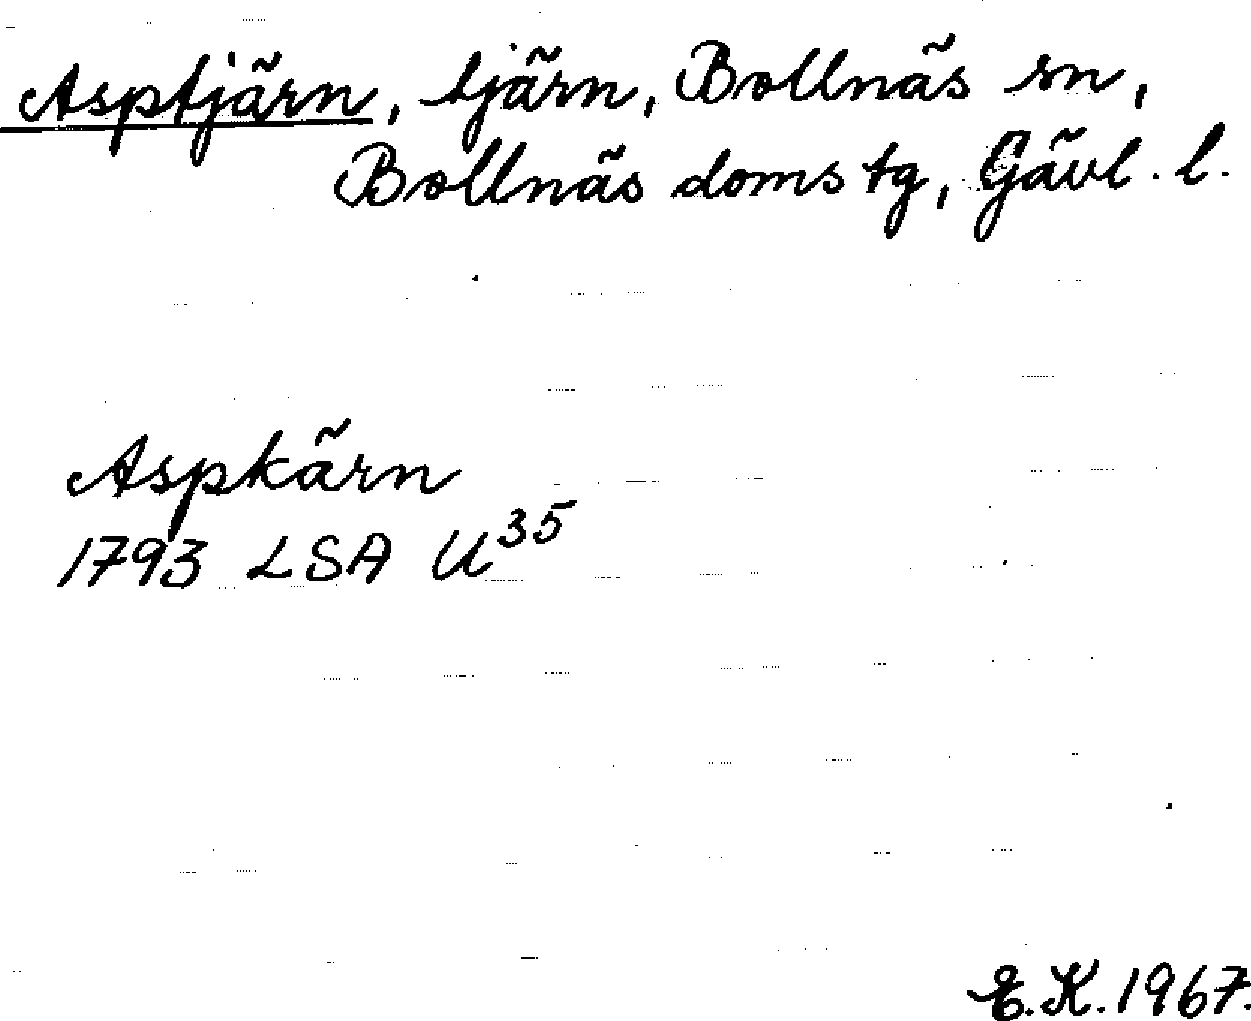 Asptjärn, tjärn, Bollnäs sn,
Bollnäs domstg, Gävl. l.
Aspkärn
1793 LSA U35
E.K. 1967.